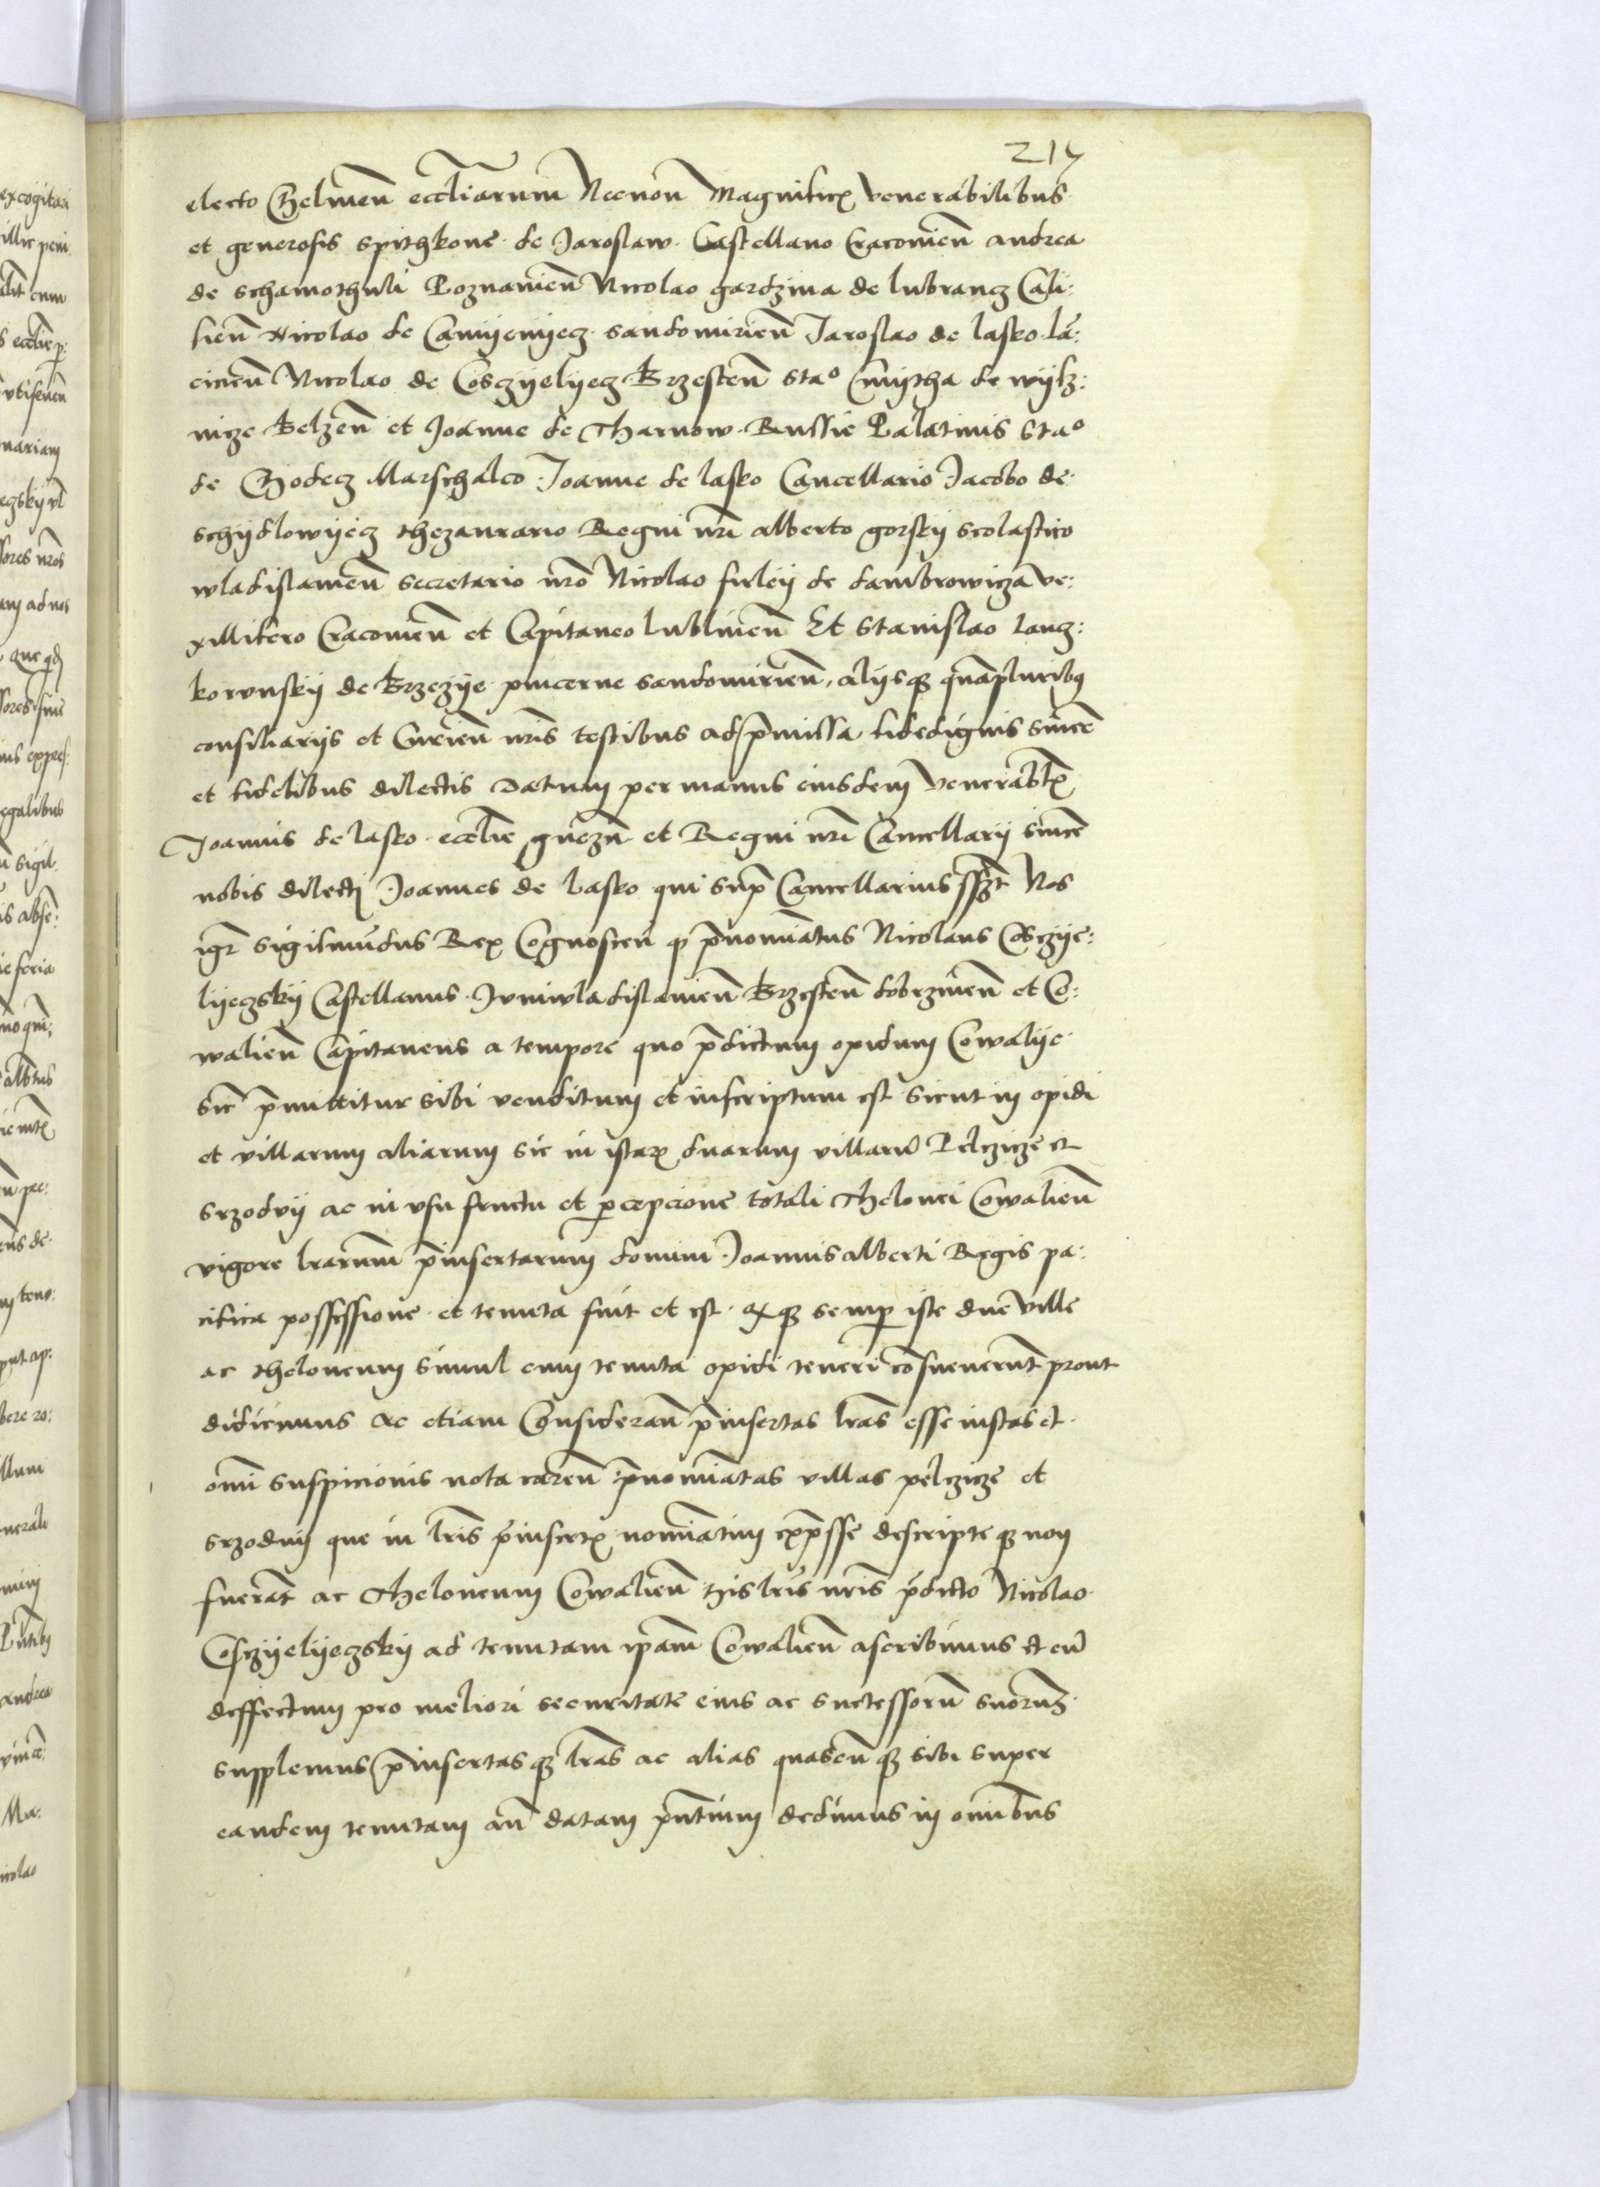 217
electo Chelmen̄ eccl̄iarum Necnon Magnificꝭ venerabilibus
et generosis Spithkone de Jaroslaw Castellano Cracovien̄ Andrea
de Schamothuli Poznanien̄ Nicolao gardzina de lubrancz Cali:
sien̄ Nicolao de Camyenyecz Sandomirien̄ Jaroslao de lasko la:
ncicien̄ Nicolao de Cosczyelyecz Brzesten̄ Stao Cmytha de wyss:
nicze Belzen̄ et Joanne de Tharnow Russie Palatinis Stao
de Chodecz Marschalco Joanne de lasko Cancellario Jacobo de
schydlowyecz thezaurario Regni nr̄i alberto gorsky scolastico
wladislavien̄ secretario nr̄o Nicolao firley de dambrowicza ve:
xillifero Cracovien̄ et Capitaneo lublinen̄ Et Stanislao lancz:
korunsky de Brzezye pincerne Sandomirien̄, alijsqꝫ quāpluribꝰ
consiliarijs et Curien̄ nr̄is testibus ad p̄missa fidedignis sincē
et fidelibus dilectis Datum per manus eiusdem venerabilꝭ
Joannis de lasko ecclīe gnezn̄ et Regni nr̄i Cancellarij sincē
nobis dilecti Joannes de Lasko qui sup̄ Cancellarius sszt Nos
igr̄ Sigismūdus Rex Cognoscen̄ qꝫ p̄nomīatus Nicolaus Cosczye:
lyeczsky Castellanus Juniwladislavien̄ Brzesten̄ dobrzinen̄ et Co:
walien̄ Capitaneus a tempore quo p̄dictum opidum Cowalye
sic p̄mittitur sibi venditum et inscriptum est sicut in opidi
et villarum aliarum sic in istaꝝ duarum villarū Pelczicze et
Srzodvy ac in usu fructu et p̱cepcione totali Thelonei Cowalien̄
vigore lr̄arum p̄insertarum domini Joannis alberti Regis pa:
cifica possessione et tenuta fuit et est qꝫ semp̱ iste due ville
ac theloneum simul cum tenuta opidi teneri consueverunt prout
didicimus ac etiam Consideran̄ p̄insertas lr̄as esse iustas et
omī suspicionis nota caren̄ p̄nomīatas villas pelczicze et
Srzoduy que in lr̄is p̄insertꝭ nominatim exp̄sse descripteqꝫ non
fuerāt ac Theloneum Cowalien̄ his lr̄is nr̄is p̄dicto Nicolao
Cosczyelyeczsky ad tenutam ip̄am Cowalien̄ ascribimus et eū
deffectum pro meliori securitate eius ac successorū suorum
supplemus p̄insertasqꝫ lr̄as ac alias quascūqꝫ sibi super
eandem tenutam an̄ datam p̄ntium dedimus in omībus